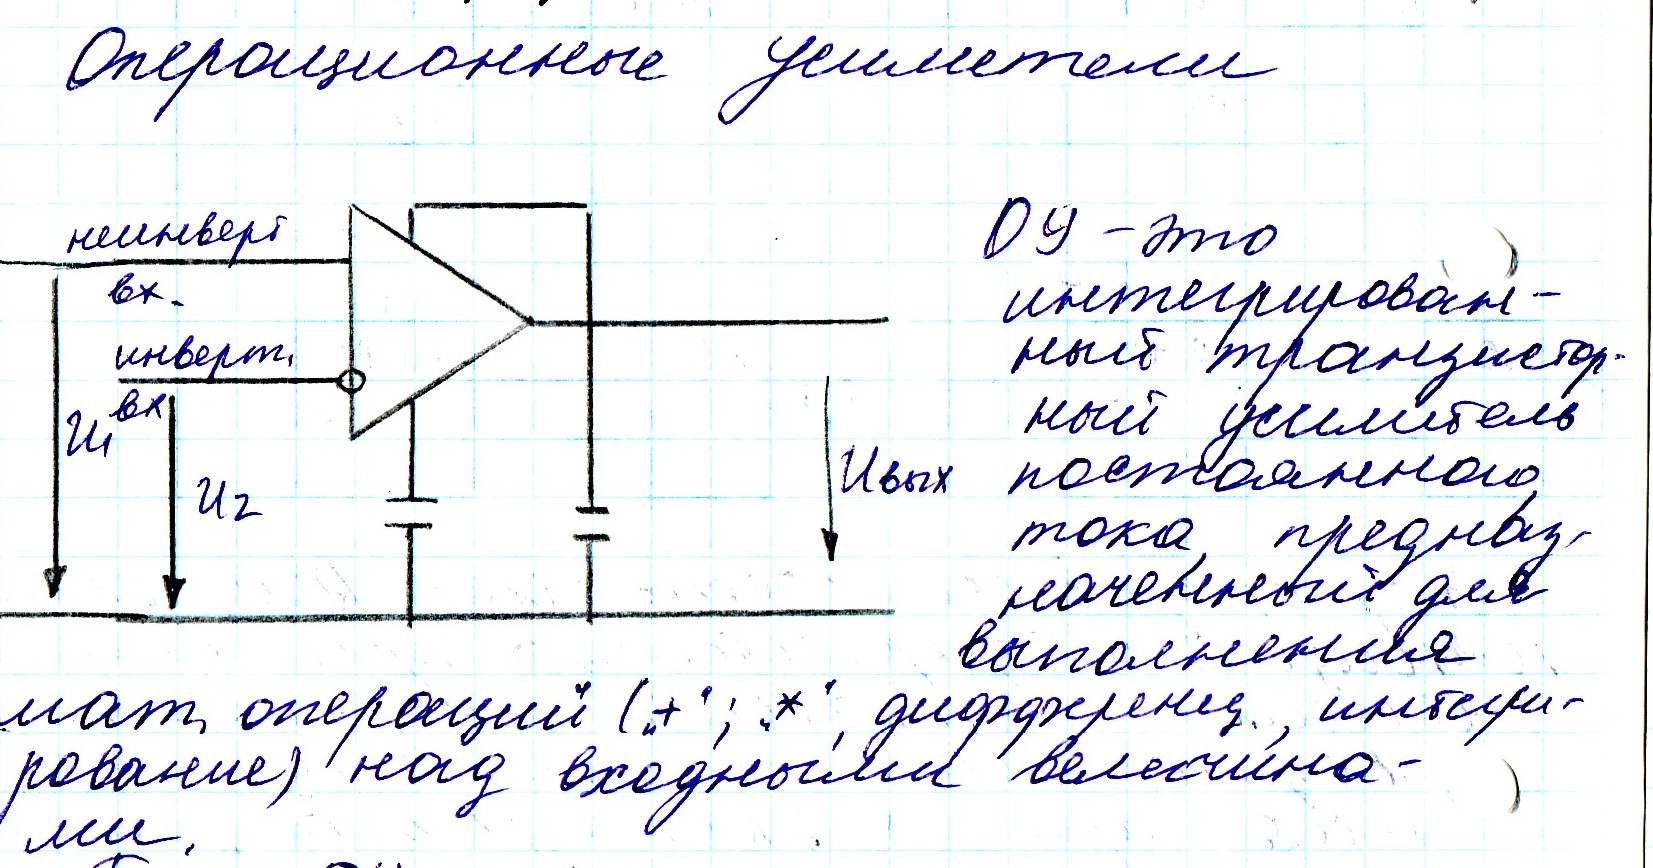 Операционные усилители
неинверт
вх.
инверт.
вх
U1
U2
Uвых
ОУ - это
интегрирован-
ный транзистор-
ный усилитель
постоянного
тока, предназ-
наченный для
выполнения
мат. операций („+“; „*“, дифференц., интегри-
рование) над входными величина-
ми.